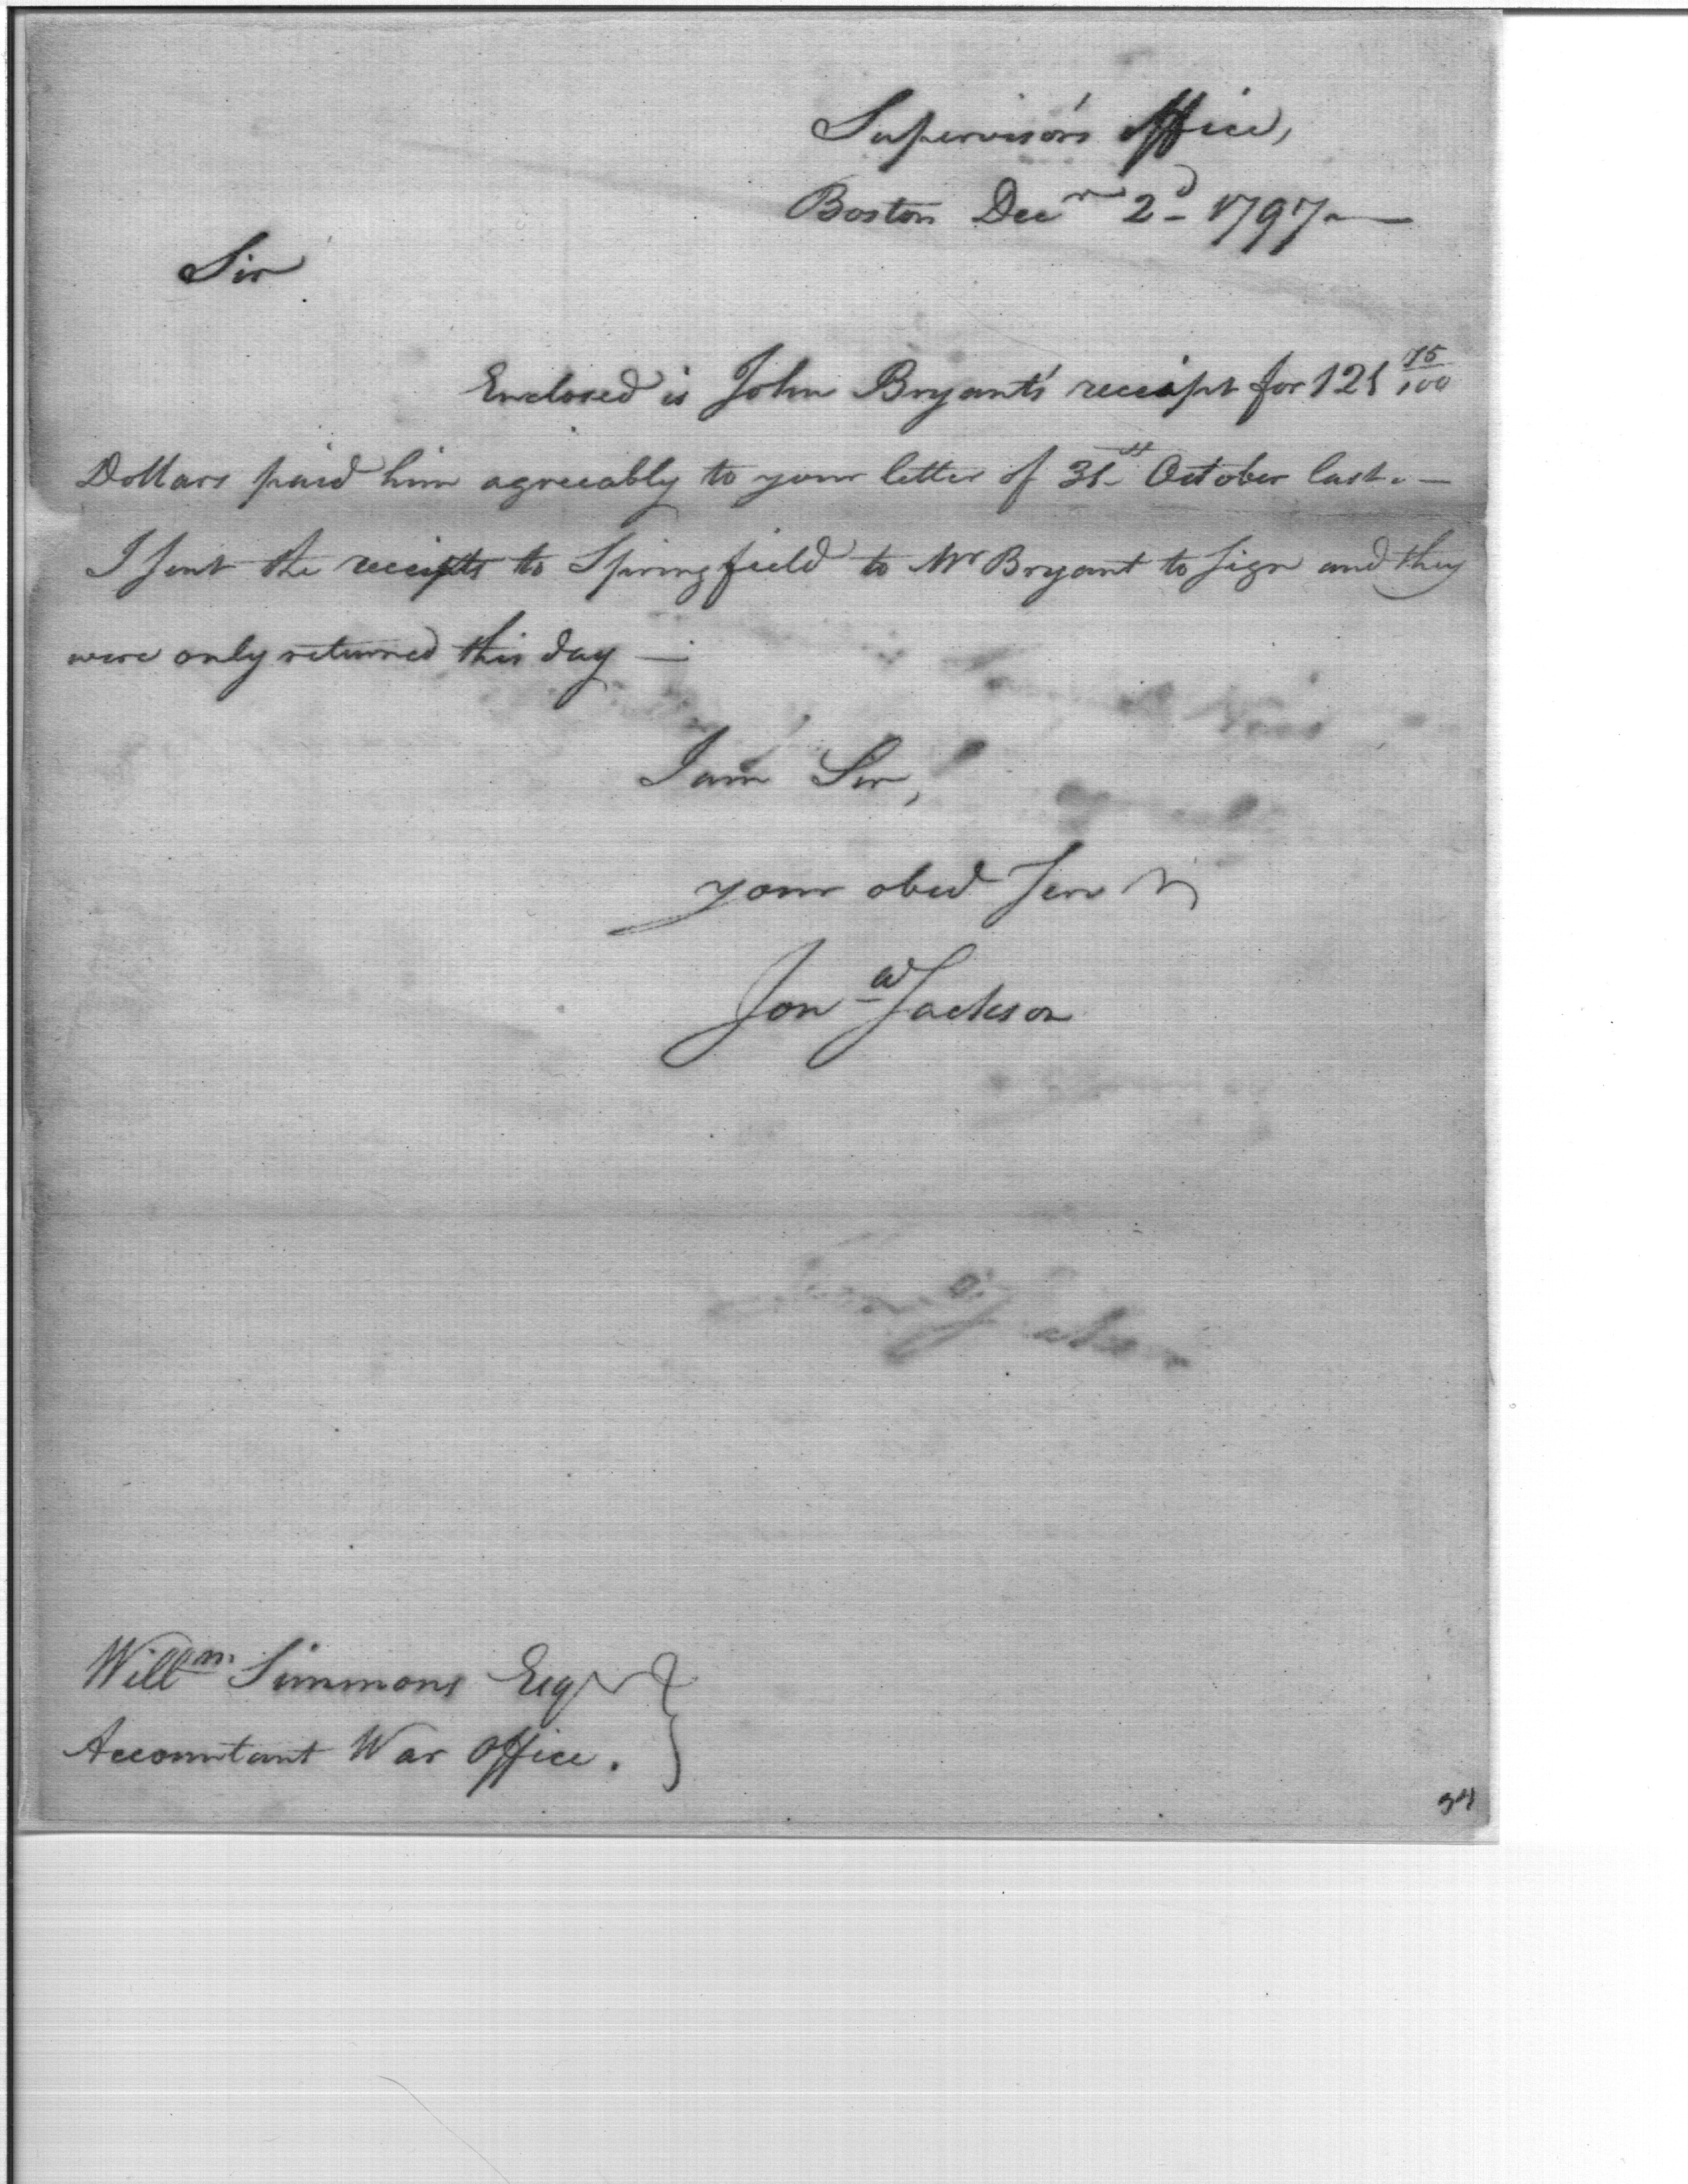 Supervisor's office,
Boston Decr 2d 1797
Sir
Enclosed is John Bryant's receipt for 121 75/100
Dollars paid him agreeably to your letter of 31st October last. —
I sent the receipts to Springfield to Mr Bryant to sign and they
were only returned this day —
I am Sir,
your obed Serv
Jona Jackson
Willm Simmons Esqr
Accountant War Office.